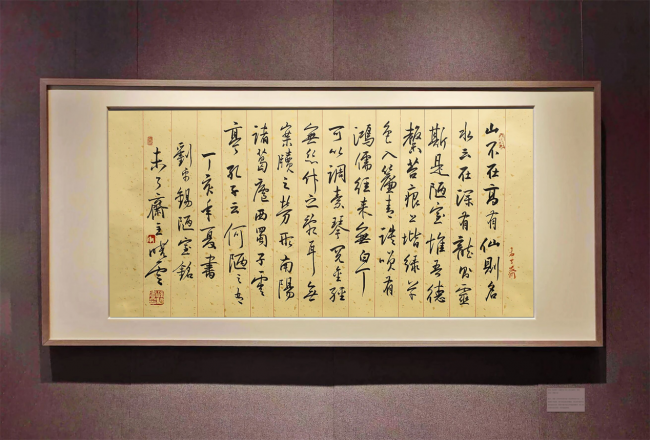 山不在高有仙則名
水不在深有龍則靈
斯是陋室惟吾德
馨苔痕上堦綠草
色入簾青談咲有
鴻儒往來無白丁
可以調素琴閱金經
無絲竹之亂耳無
案牘之勞形南陽
諸葛廬西蜀子雲
亭孔子云何陋之有
丁亥年夏書
劉禹錫陋室銘
未了齋主曉雲